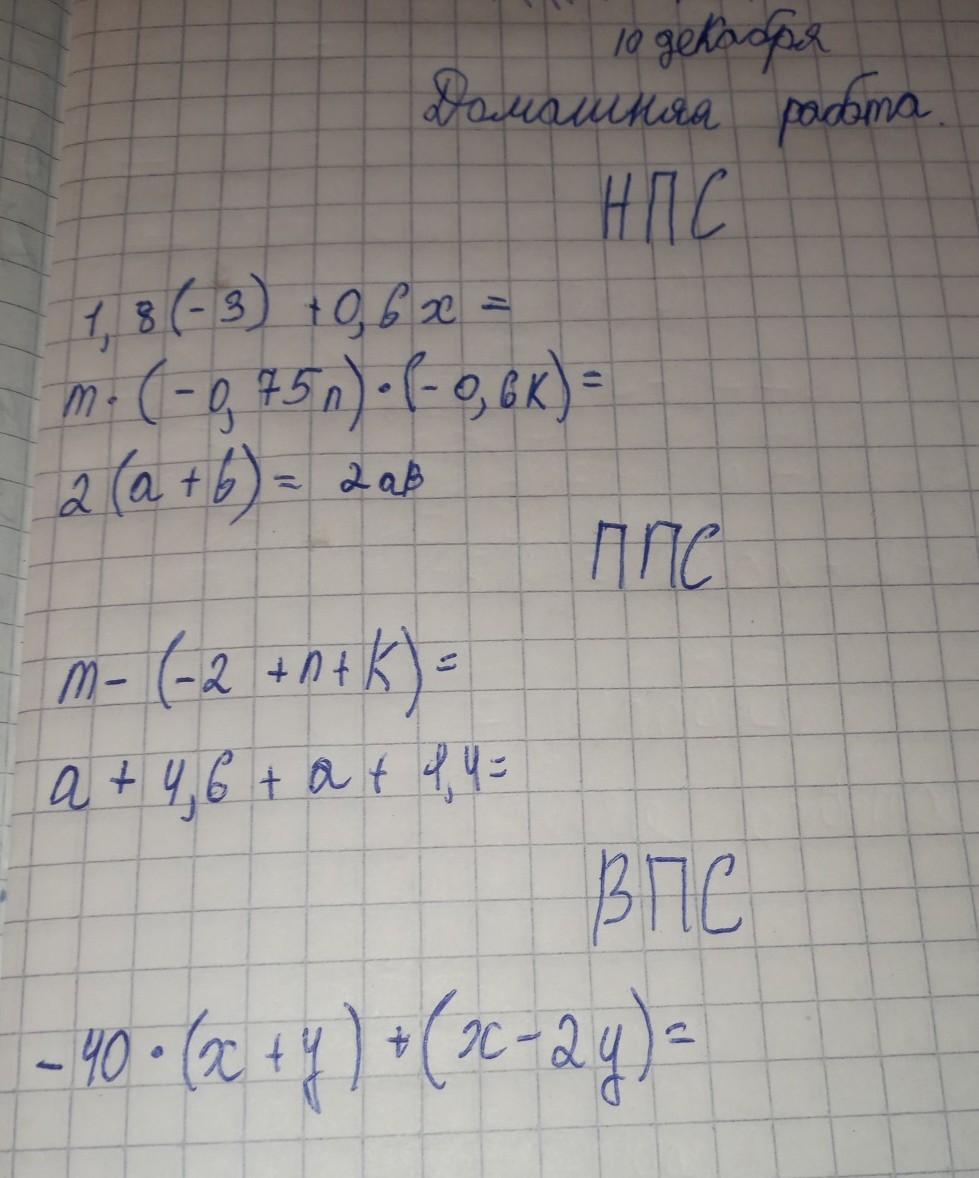 10 декабря
Домашняя работа.
НПС
1,8(-3) +0,6x =
m·(-0,75n)·(-0,6k)=
2(a+b)= 2ab
ППС
m-(-2 +n+k)=
a + 4,6 + a + 1,4=
ВПС
-40·(x+y)+(x-2y)=